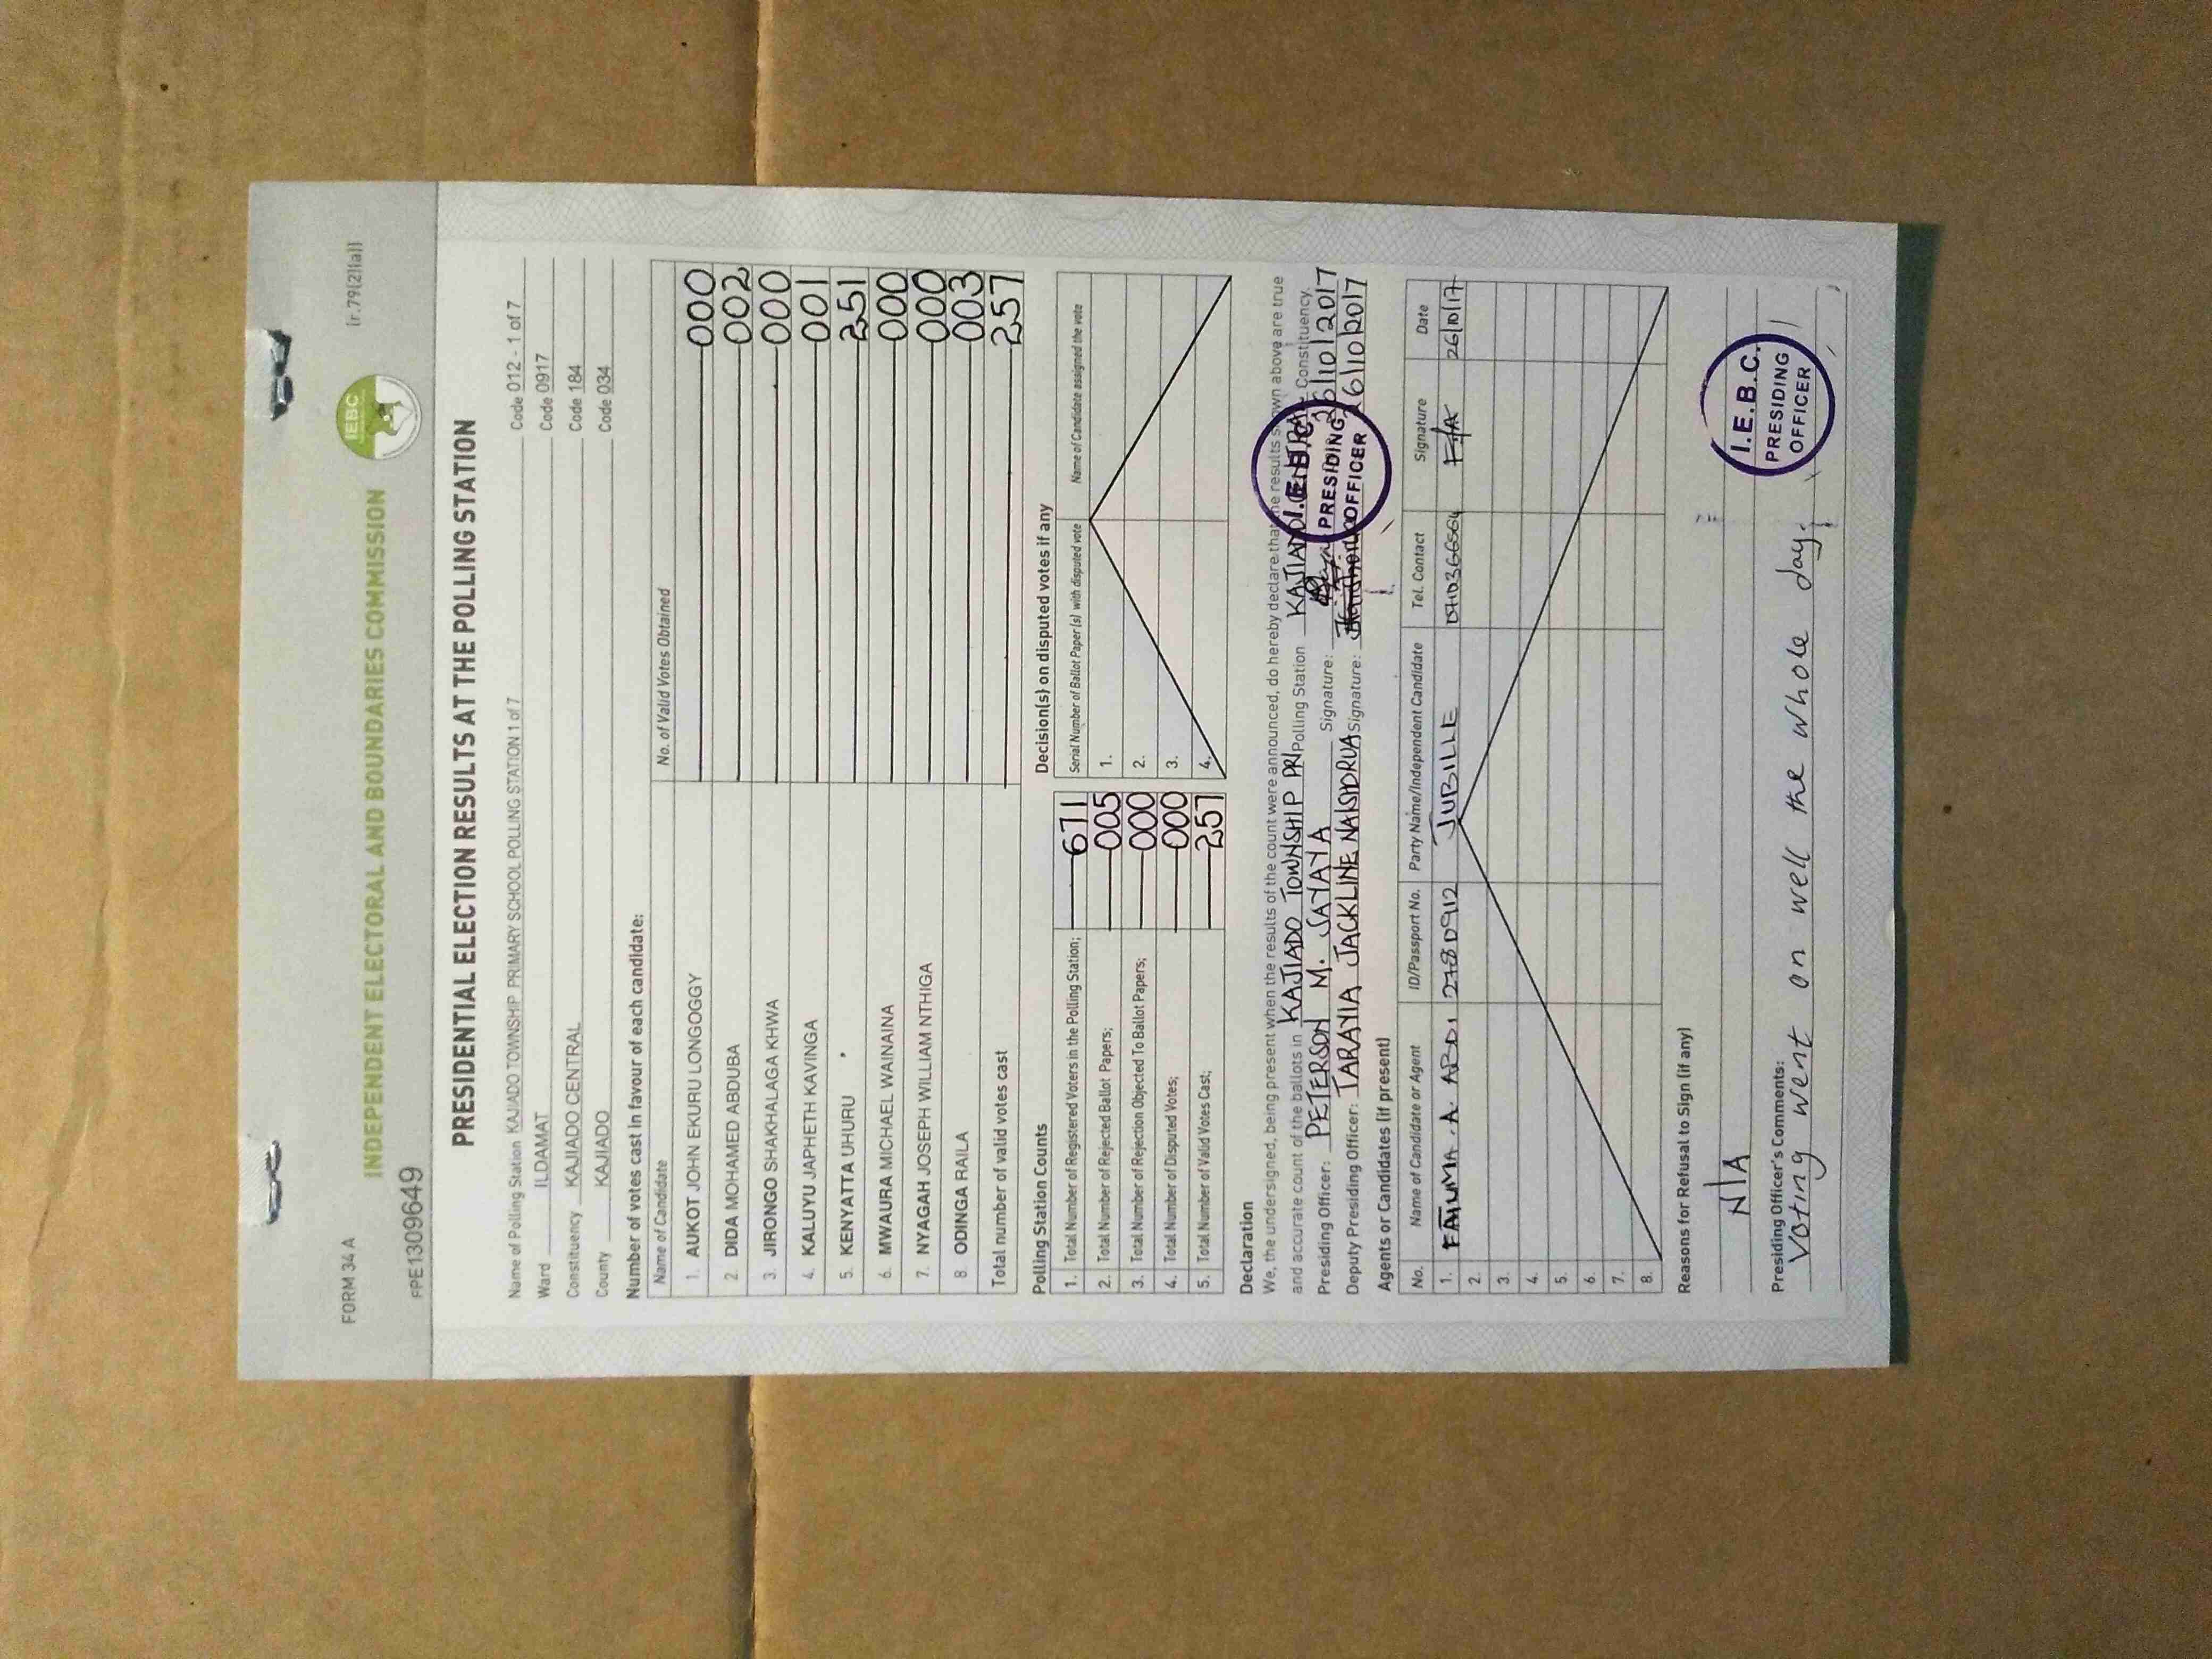 FORM 34 A
[r.79(2)(a)]
IEBC
INDEPENDENT ELECTORAL AND BOUNDARIES COMMISSION
FPE1309649
PRESIDENTIAL ELECTION RESULTS AT THE POLLING STATION
Name of Polling Station KAJIADO TOWNSHIP PRIMARY SCHOOL POLLING STATION 1 of 7 Code 012 - 1 of 7
Ward ILDAMAT Code 0917
Constituency KAJIADO CENTRAL Code 184
County KAJIADO Code 034
Number of votes cast in favour of each candidate:
Name of Candidate No. of Valid Votes Obtained
1. AUKOT JOHN EKURU LONGOGGY 000
2. DIDA MOHAMED ABDUBA 002
3. JIRONGO SHAKHALAGA KHWA 000
4. KALUYU JAPHETH KAVINGA 001
5. KENYATTA UHURU 251
6. MWAURA MICHAEL WAINAINA 000
7. NYAGAH JOSEPH WILLIAM NTHIGA 000
8. ODINGA RAILA 003
Total number of valid votes cast 257
Polling Station Counts
1. Total Number of Registered Voters in the Polling Station; 671
2. Total Number of Rejected Ballot Papers; 005
3. Total Number of Rejection Objected To Ballot Papers; 000
4. Total Number of Disputed Votes; 000
5. Total Number of Valid Votes Cast; 257
Decision(s) on disputed votes if any
Serial Number of Ballot Paper(s) with disputed vote Name of Candidate assigned the vote
1.
2.
3.
4.
Declaration
We, the undersigned, being present when the results of the count were announced, do hereby declare that the results shown above are true
and accurate count of the ballots in KAJIADO TOWNSHIP PRI Polling Station KAJIADO CENTRAL Constituency.
Presiding Officer: PETERSON M. SAYAYA Signature: 26/10/2017
Deputy Presiding Officer: TARAYIA JACKLINE Signature: 26/10/2017
I.E.B.C.
PRESIDING
OFFICER
Agents or Candidates (if present)
No. Name of Candidate or Agent ID/Passport No. Party Name/Independent Candidate Tel. Contact Signature Date
1. FATUMA .A. ABDI JUBILLE 26/10/17
2.
3.
4.
5.
6.
7.
8.
Reasons for Refusal to Sign (if any)
N/A
Presiding Officer's Comments:
Voting went on well the whole day.
I.E.B.C.
PRESIDING
OFFICER